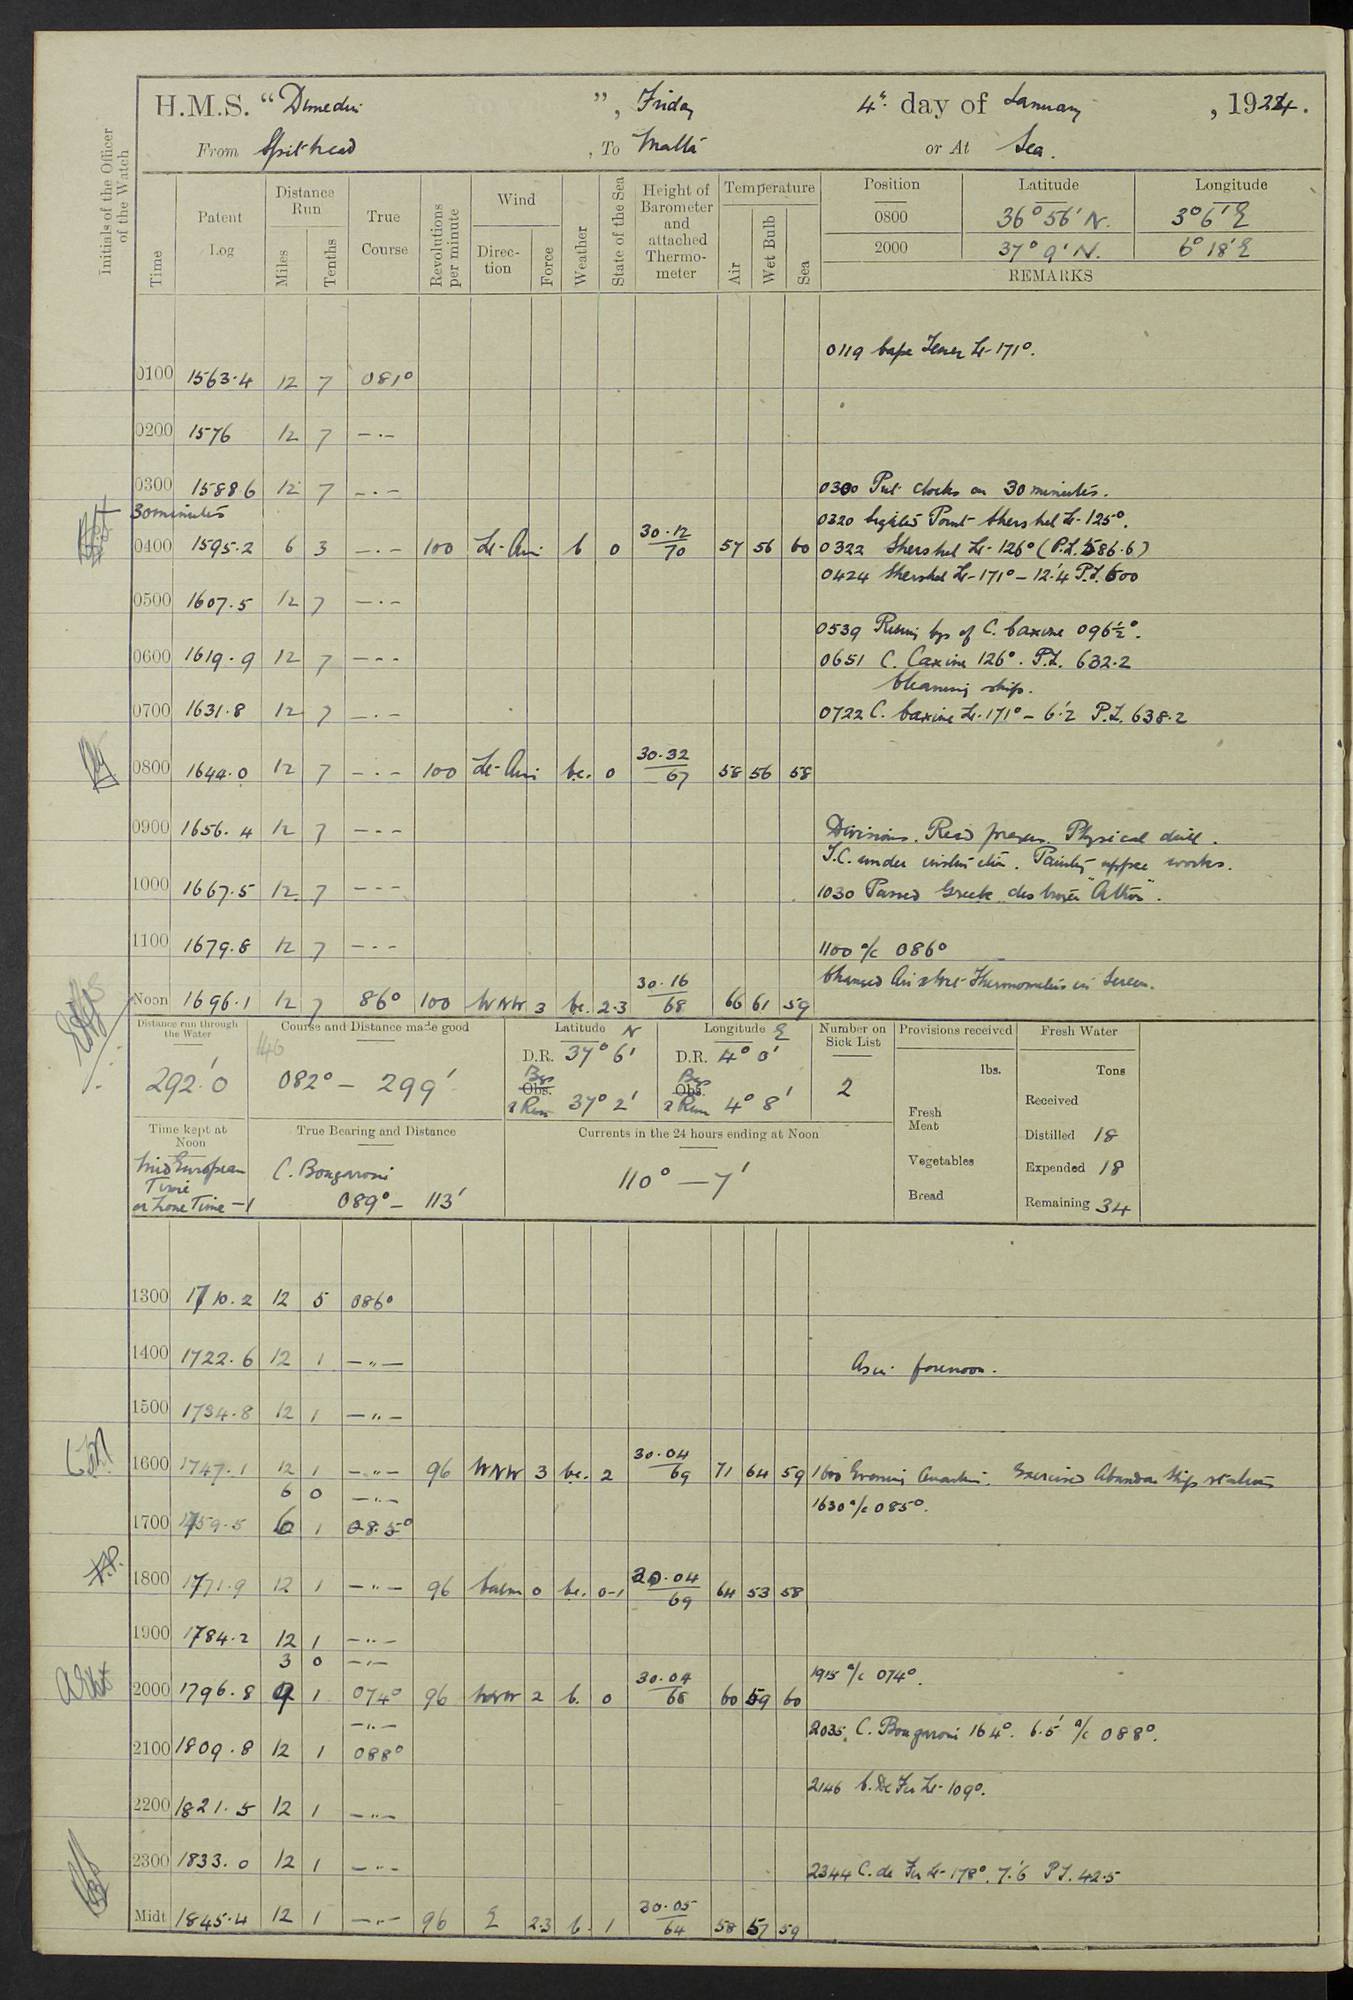 H.M.S. "Dunedin", Friday 4th day of January, 1924.
From Spithead, To Malta or At Sea.
Initials of the Officer of the Watch
Time Patent Log Distance Run Miles Tenths True Course Revolutions per minute Wind Direction Force Weather State of the Sea Height of Barometer and attached Thermometer Temperature Air Wet Bulb Sea
Position Latitude Longitude
0800 36° 56' N. 3° 6' E
2000 37° 9' N. 6° 18' E
REMARKS
0119 Cape Tenez Lt. 171°.
0100 1563.4 12 7 081°
0200 1576 12 7 —.—
0300 1588 6 12 7 —.— 0300 Put clocks on 30 minutes.
30 minutes
0320 Sighted Point Shershel Lt. 125°.
0400 1595.2 6 3 —.— 100 Lt. Airs b 0 30.12/70 57 56 60 0322 Shershel Lt. 126° (P.L. 586.6)
0424 Shershel Lt. 171° — 12'.4 P.L. 600
0500 1607.5 12 7 —.—
0539 Rising brg of C. Caxine 096½°.
0600 1619.9 12 7 ——— 0651 C. Caxine 126°. P.L. 632.2
Cleaning ship.
0700 1631.8 12 7 —.— 0722 C. Caxine Lt. 171° — 6'.2 P.L. 638.2
0800 1644.0 12 7 —.— 100 Lt. Airs bc. 0 30.32/67 58 56 58
0900 1656.4 12 7 —.— Divisions. Read prayers. Physical drill.
T.C. under instruction. Painting upper works.
1000 1667.5 12 7 —.— 1030 Passed Greek destroyer
1100 1679.8 12 7 —.— 1100 a/c 086°
Changed Air &c Thermometers in Screen.
Noon 1696.1 12 7 86° 100 WNW 3 bc. 2.3 30.16/68 66 61 59
Distance run through the Water 292'.0
Course and Distance made good 146 082° — 299'
Latitude N D.R. 37° 6' Obs. Brgs & Run 37° 2'
Longitude E D.R. 4° 0' Obs. Brgs & Run 4° 8'
Number on Sick List 2
Provisions received lbs. Fresh Meat Vegetables Bread
Fresh Water Tons Received Distilled 18 Expended 18 Remaining 34
Time kept at Noon Mid European Time or Zone Time —1
True Bearing and Distance C. Bougaroni 089° — 113'
Currents in the 24 hours ending at Noon 110° — 7'
1300 1710.2 12 5 086°
1400 1722.6 12 1 —"— As in forenoon.
1500 1734.8 12 1 —"—
1600 1747.1 12 1 —"— 96 WNW 3 bc. 2 30.04/69 71 64 59 1600 Evening Quarters. Exercised Abandon Ship stations
6 0 —"— 1630 a/c 085°.
1700 1759.5 6 1 085°
1800 1771.9 12 1 —"— 96 Calm 0 bc. 0-1 30.04/69 64 53 58
1900 1784.2 12 1 —"—
3 0 —"— 1915 a/c 074°.
2000 1796.8 9 1 074° 96 WNW 2 b. 0 30.04/68 60 59 60
—"— 2035. C. Bougaroni 164°. 6.5' a/c 088°.
2100 1809.8 12 1 088°
2146 C. De Fer Lt. 109°.
2200 1821.5 12 1 —"—
2300 1833.0 12 1 —"— 2344 C. de Fer Lt. 178°. 7'.6 P.L. 42.5
Midt 1845.4 12 1 —"— 96 E 2.3 b. 1 30.05/64 58 57 59